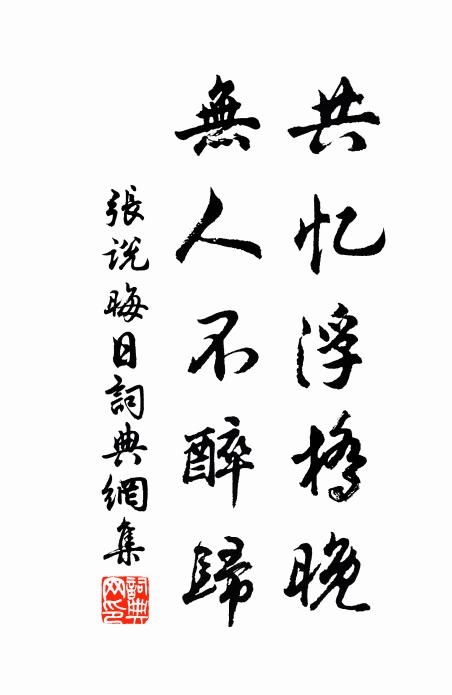 共忆浮橋晚
無人不醉歸
張說晦日詞典網集
詞典網印